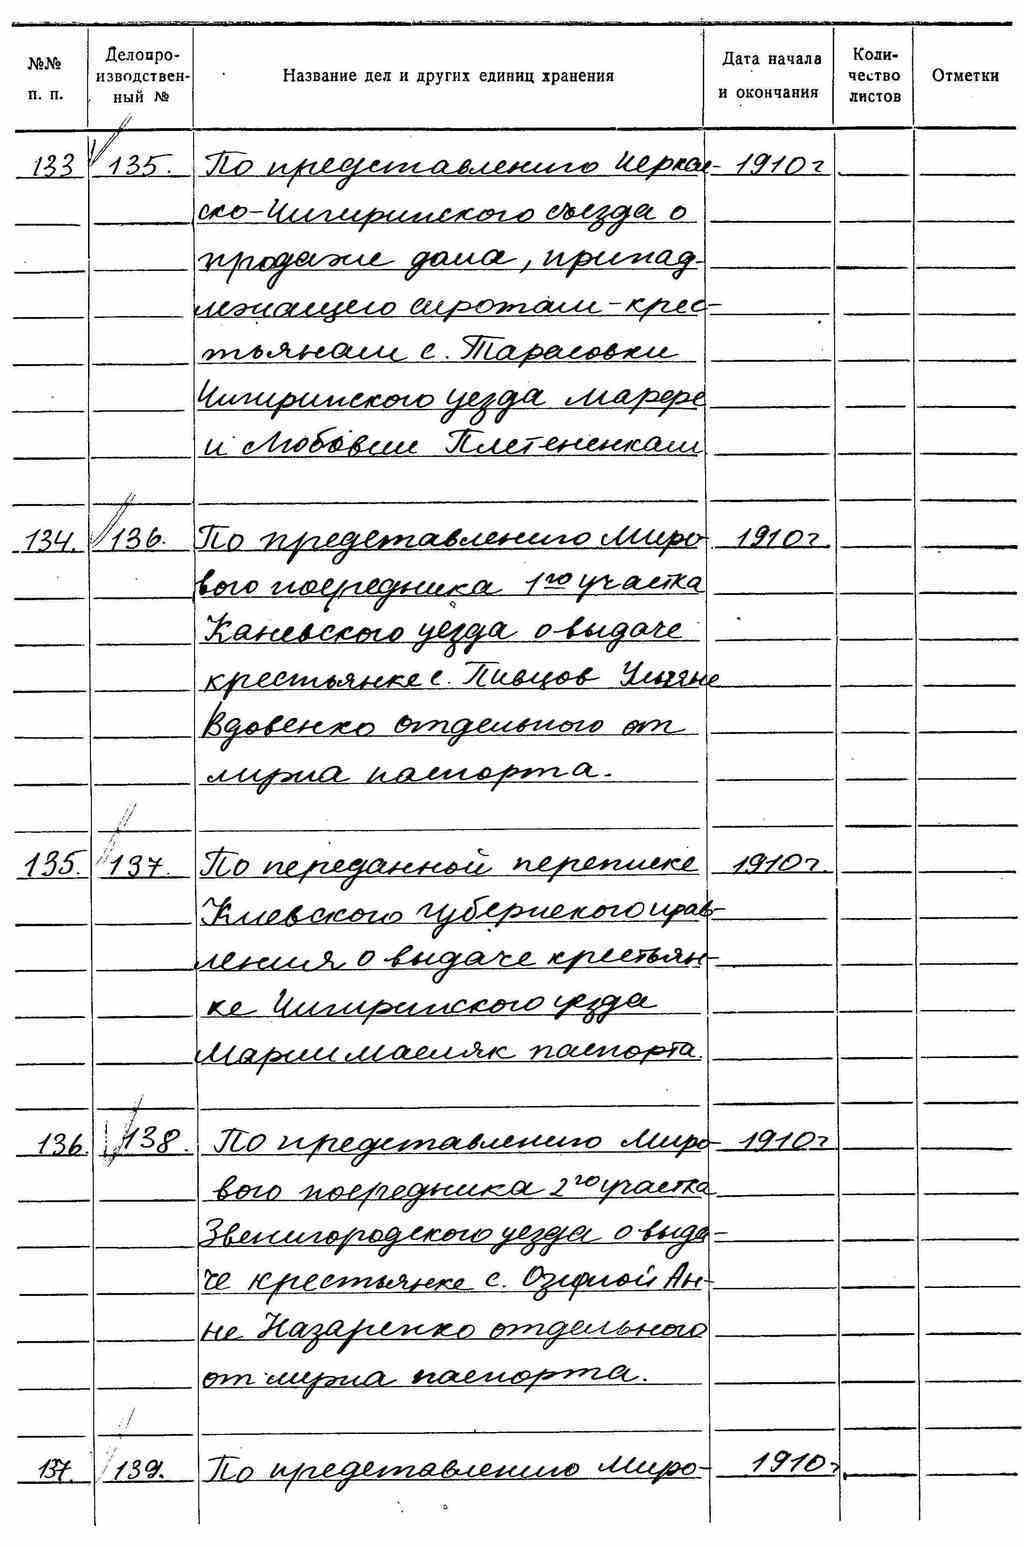 №№ п. п. Делопро-изводствен-ный № Название дел и других единиц хранения Дата начала и окончания Коли-чество листов Отметки
133 135. По представлению Черкас- 1910 г
ско-Чигиринского съезда о
продаже дома, принад-
лежащего сиротам-крес-
тьянам с. Тарасовки
Чигиринского уезда Марфе
и Любови Плетененкам
134. 136. По представлению Миро- 1910 г.
вого посредника 1го участка
Каневского уезда о выдаче
крестьянке с. Пивцов Ульяне
Вдовенко отдельного от
мужа паспорта.
135. 137. По переданной переписке 1910 г.
Киевского губернского прав-
ления о выдаче крестьян-
ке Чигиринского уезда
Марии Масляк паспорта.
136. 138. По представлению Миро- 1910 г
вого посредника 2го участка
Звенигородского уезда о выда-
че крестьянке с. Озирной Ан-
не Назаренко отдельного
от мужа паспорта.
137. 139. По представлению Миро- 1910 г.